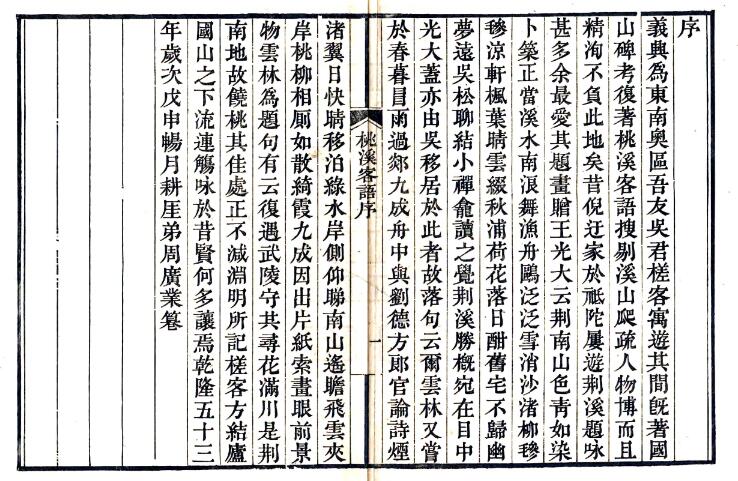 序
義興為東南奧區吾友吳君槎客寓遊其間旣著國
山碑考復著桃溪客語搜剔溪山爬疏人物博而且
精洵不負此地矣昔倪迂家於祗陀屢遊荆溪題咏
甚多余最愛其題畫贈王光大云荆南山色靑如染
卜築正當溪水南浪舞漁舟鷗泛泛雪消沙渚柳毿
毿涼軒楓葉晴雲綴秋浦荷花落日酣舊宅不歸幽
夢遠吳松聊結小禪龕讀之覺荆溪勝槪宛在目中
光大蓋亦由吳移居於此者故落句云爾雲林又嘗
於春暮冒雨過郯九成舟中與劉德方郎官論詩煙
桃溪客語序
一
渚翼日快晴移泊綠水岸側仰睇南山遙瞻飛雲夾
岸桃柳相厠如散綺霞九成因出片紙索畫眼前景
物雲林為題句有云復遇武陵守共尋花滿川是荆
南地故饒桃其佳處正不減淵明所記槎客方結廬
國山之下流連觴咏於昔賢何多讓焉乾隆五十三
年歲次戊申暢月耕厓弟周廣業篹